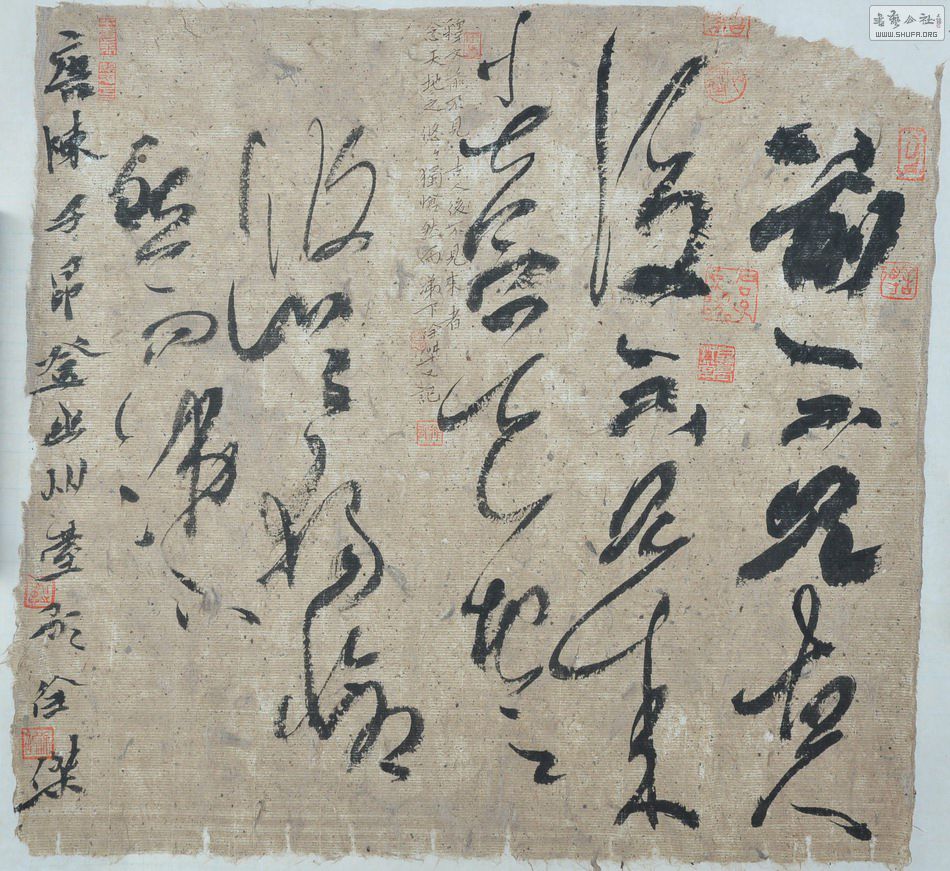 前不見古人
後不見來
者念天地之
悠〻獨愴
然而涕下
釋文前不見古人後不見來者
念天地之悠〻獨愴然而涕下徐傑記
唐陳子昂登幽州臺歌徐傑
书艺公社
WWW.SHUFA.ORG